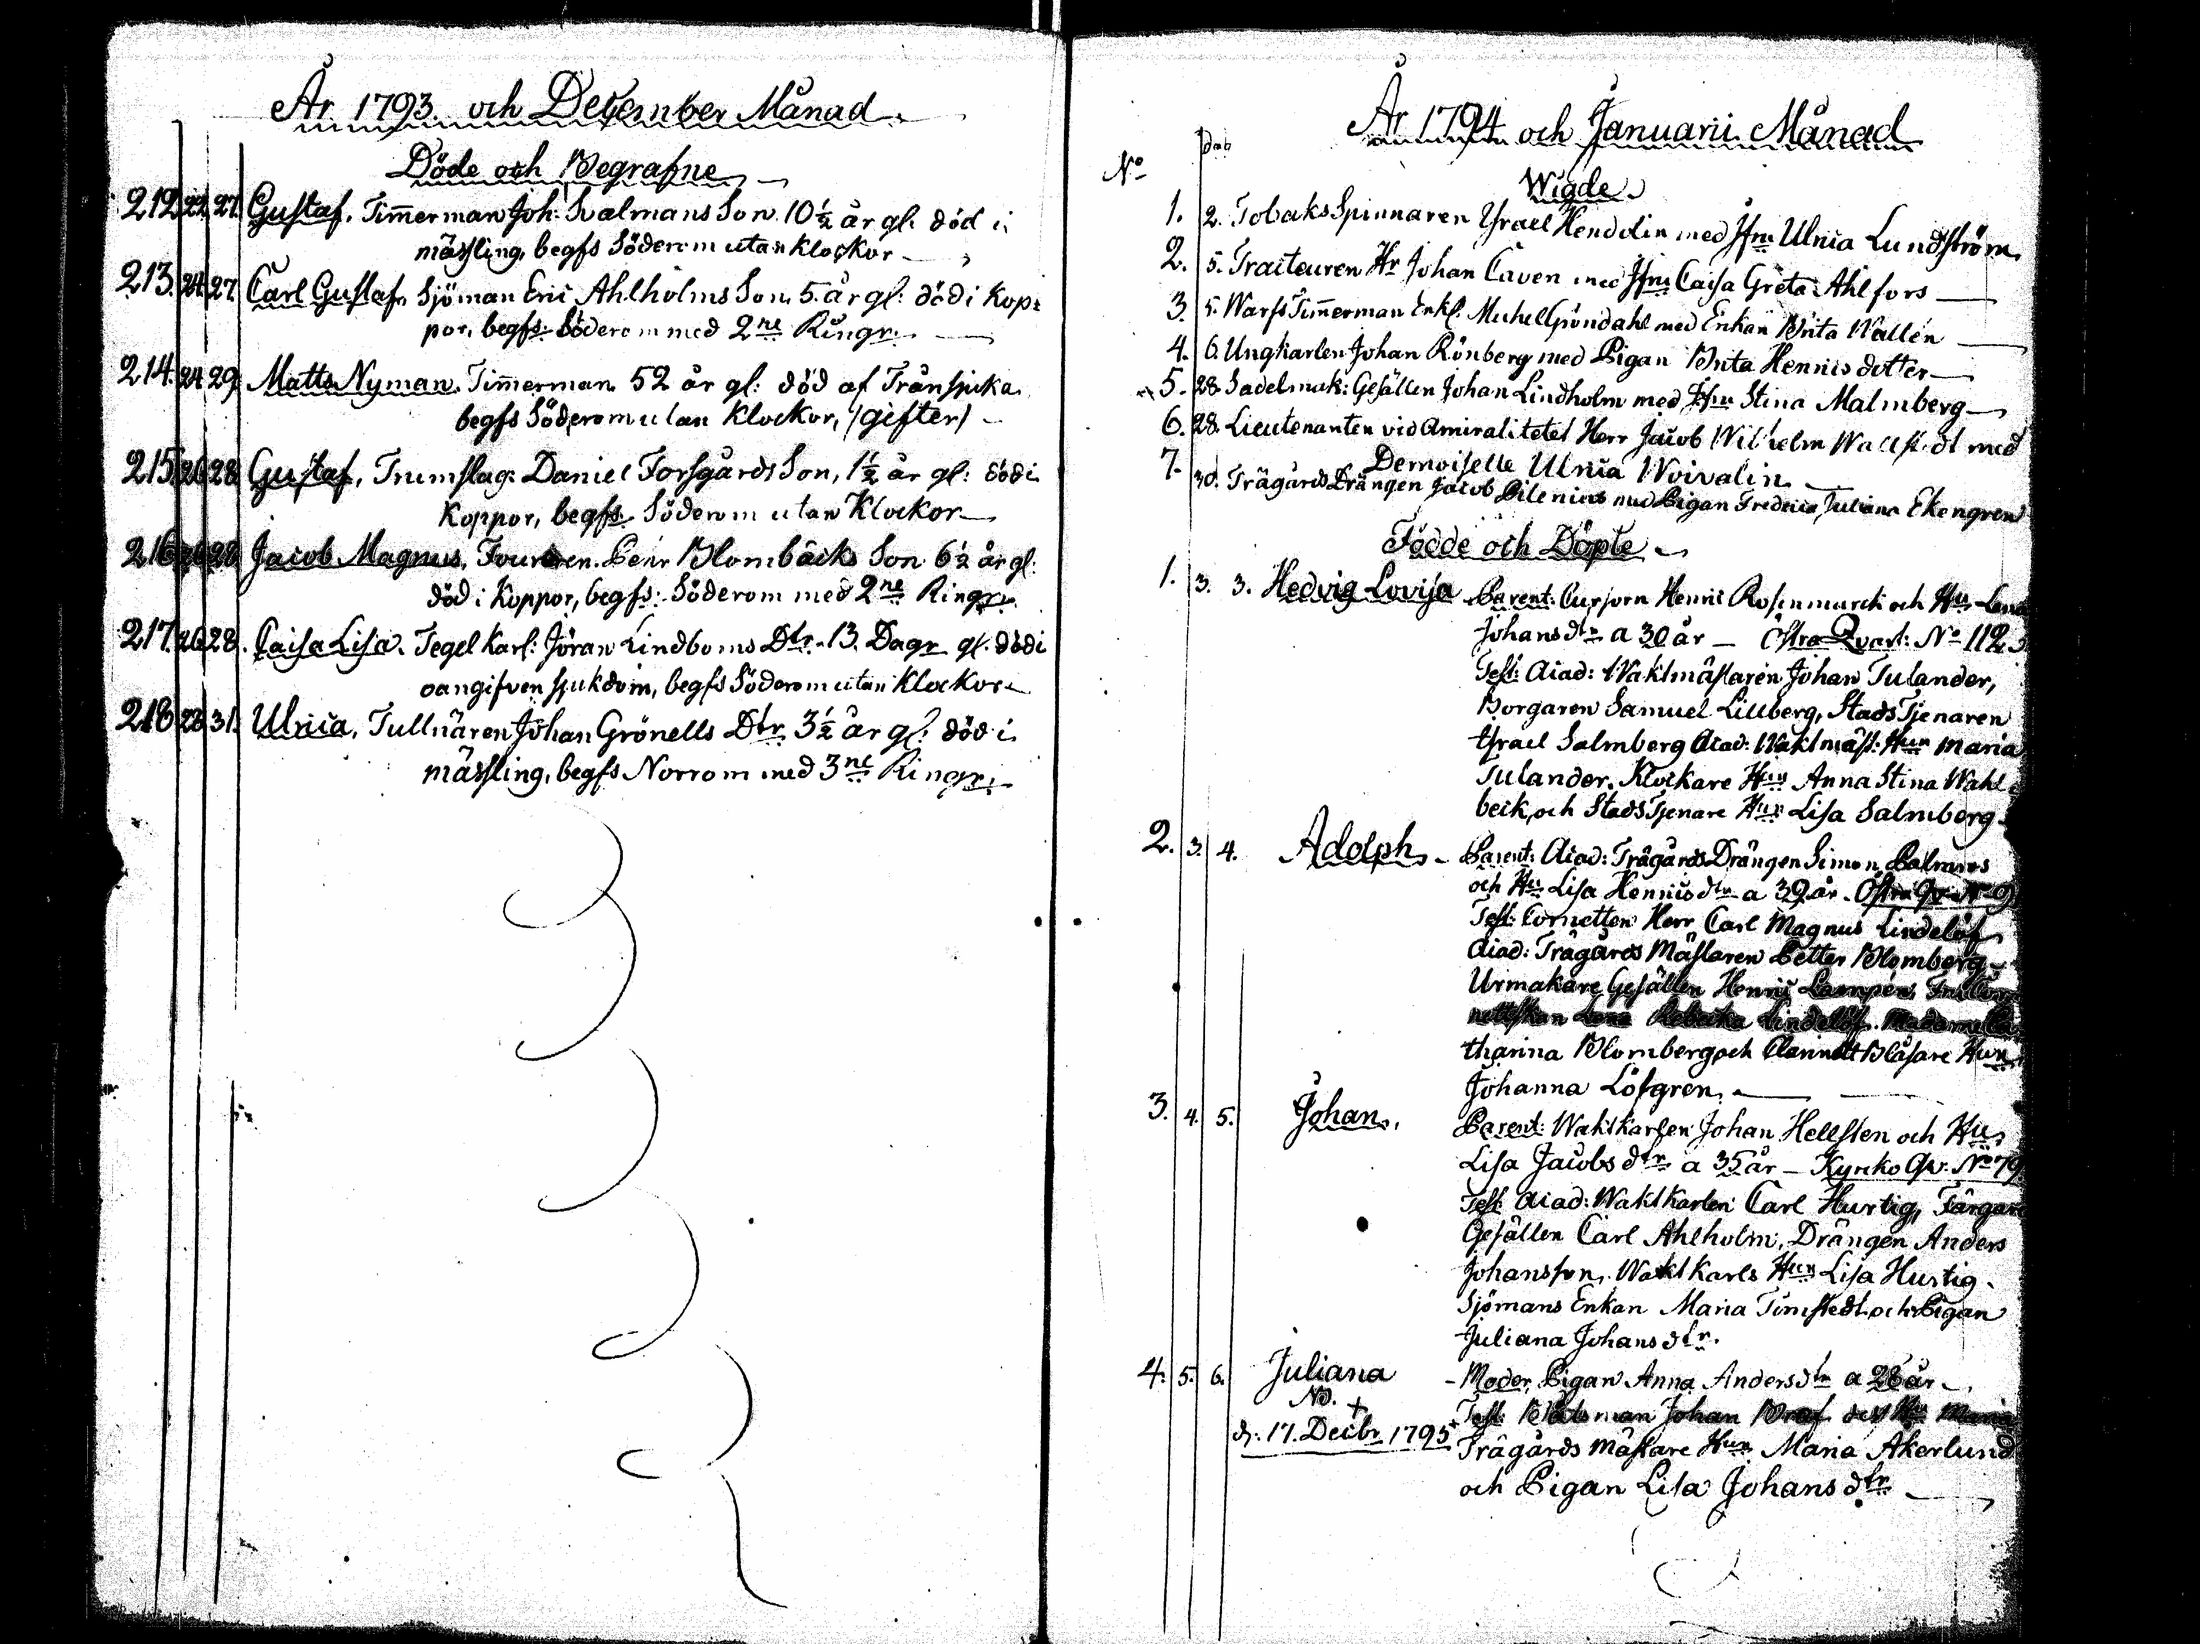 År 1793. och December Månad.
Döde och Begrafne
212. 22. 27. Gustaf. Timmerman Joh: Salmans Son. 10 1/2 år gl. död i
mässling, begfs Söderom utan klockor
213. 24. 27. Carl Gustaf. Sjöman Eric Ahlholms Son. 5. år gl: död i kop-
por, begfs: Söderom med 2ne Ringr.
214. 24. 29. Matts Nyman. Timmerman 52 år gl: död af Trånsjuka
begfs Söderom utan Klockor, /gifter/
215. 26. 28. Gustaf, Trumslag: Daniel Forsgårds Son, 1 1/2 år gl: död i
Koppor, begfs Söderom utan Klockor
216. 26. 28. Jacob Magnus. Blombäcks Son. 6 1/2 år gl:
död i koppor, begfs: Söderom med 2ne Ringr.
217. 26. 28. Caisa Lisa. Tegel Karl: Jöran Lindboms Dtr. 13. Dagr gl. död i
oangifven sjukdom, begfs Söderom utan Klockor
218. 28. 31. Ulrica, Tullnären Johan Grönells Dtr. 3 1/2 år gl: död i
mässling, begfs Norrom med 3ne Ringr.
År 1794 och Januarii Månad
No
Wigde
1. 2. Tobaks Spinnaren Israel Hendelin med Jfru Ulrica Lundström
2. 5. Traiteuren Hr Johan Caven med Jfru Caisa Greta Ahlfors
3. 5. Warfs Timmerman Enkl. Michel Gröndahl med Enkan Brita Wallén
4. 6. Ungkarlen Johan Rönberg med Pigan Brita Henricsdotter
5. 28. Sadelmak: Gesällen Johan Lindholm med Jfru Stina Malmberg
6. 28. Lieutenanten vid Amiralitetet Herr Jacob Wilhelm Wallstedt med
Demoiselle Ulrica Woivalin
7. 30. Trägårds Drängen Jacob Pilenius med Pigan Fredrica Juliana Ekengren
Födde och Döpte
1. 3. 3. Hedvig Lovisa Parent: Henric Rosenmarck och Hu Lena
Johansdtr a 30 år — Östra Qvart: No 112
Test: Acad: Waktmästaren Johan Tulander,
Borgaren Samuel Lillberg, Stads Tjenaren
Israel Salmberg Acad: Waktmäst: Hun Maria
Tulander. Klockare Hun Anna Stina Wahl
beck, och Stads Tjenare Hun Lisa Salmberg
2. 3. 4. Adolph. Parent: Acad: Trägårds Drängen Simon
och Hu Lisa Henricsdtr a 39 år. Östra Qv. No 9
Test: Cornetten Herr Carl Magnus Lindelöf
Acad: Trägårds Mästaren Petter Blomberg
Urmakare Gesällen Henric Lampén,
Rebecka Lindelöf. Madame Ca
tharina Blomberg och Clarinett Blåsare Hun
Johanna Löfgren.
3. 4. 5. Johan. Parent: Waktkarlen Johan Hellsten och Hu
Lisa Jacobsdtr a 35 år — Kyrko Qv: No 79
Test Acad: Waktkarlen Carl Hurtig, Färgare
Gesällen Carl Ahlholm, Drängen Anders
Johansson, Waktkarls Hun Lisa Hurtig.
Sjömans Enkan Maria Timstedt och Pigan
Juliana Johansdtr.
4. 5. 6. Juliana Moder, Pigan Anna Andersdtr a 28 år.
+
Test: Båtsman Johan Maria
d. 17. Decbr 1795 Trägårds Mästare Hun Maria Åkerlund
och Pigan Lisa Johansdtr